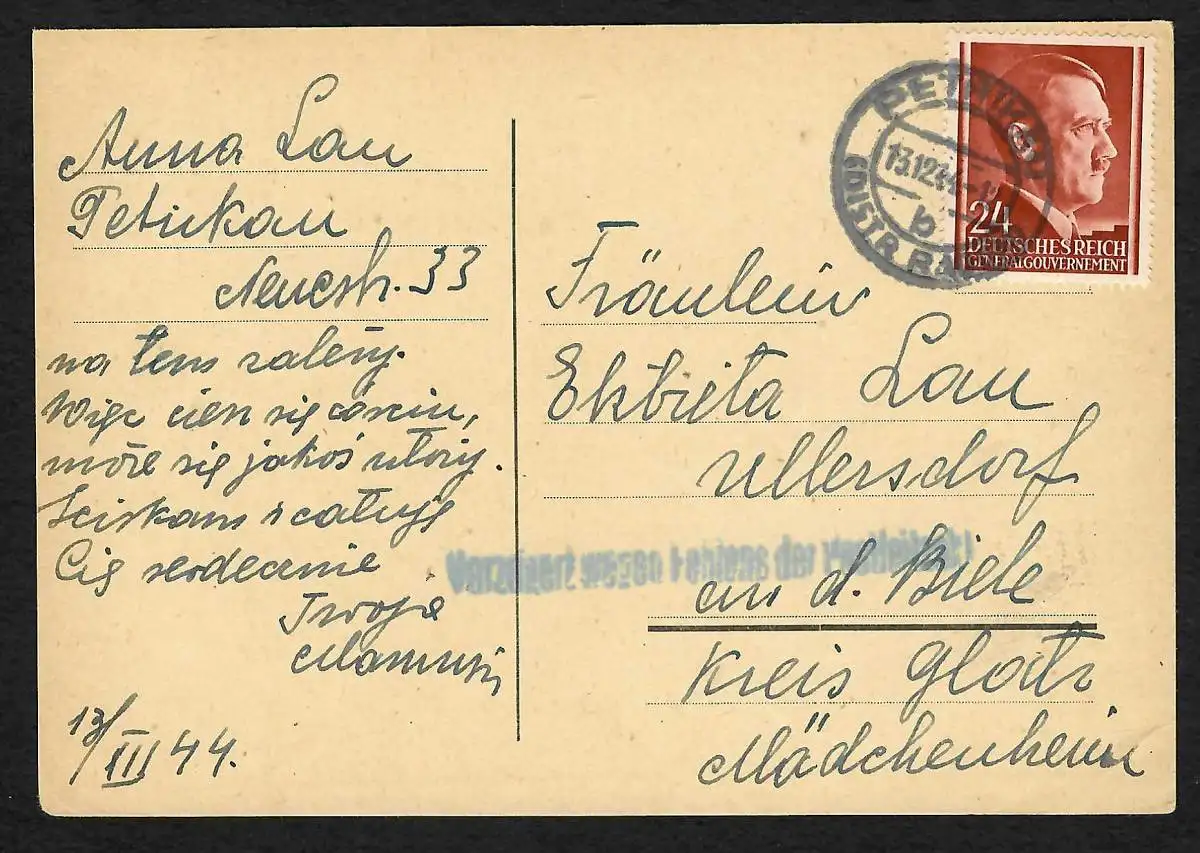 Anna Lau
Petrikau
Neuestr. 33
na tem zależy.
Więc ciesz się
może się jakoś ułoży.
Ściskam i całuję
Cię serdecznie
Twoja
Mamusia
13/III 44.
PETRIKAU
13.12.44
b
(DISTR. RADOM)
24
DEUTSCHES REICH
GENERALGOUVERNEMENT
Fräulein
Elżbieta Lau
Ullersdorf
Verzögert wegen Fehlens der
an d. Biele
Kreis Glatz
Mädchenheim